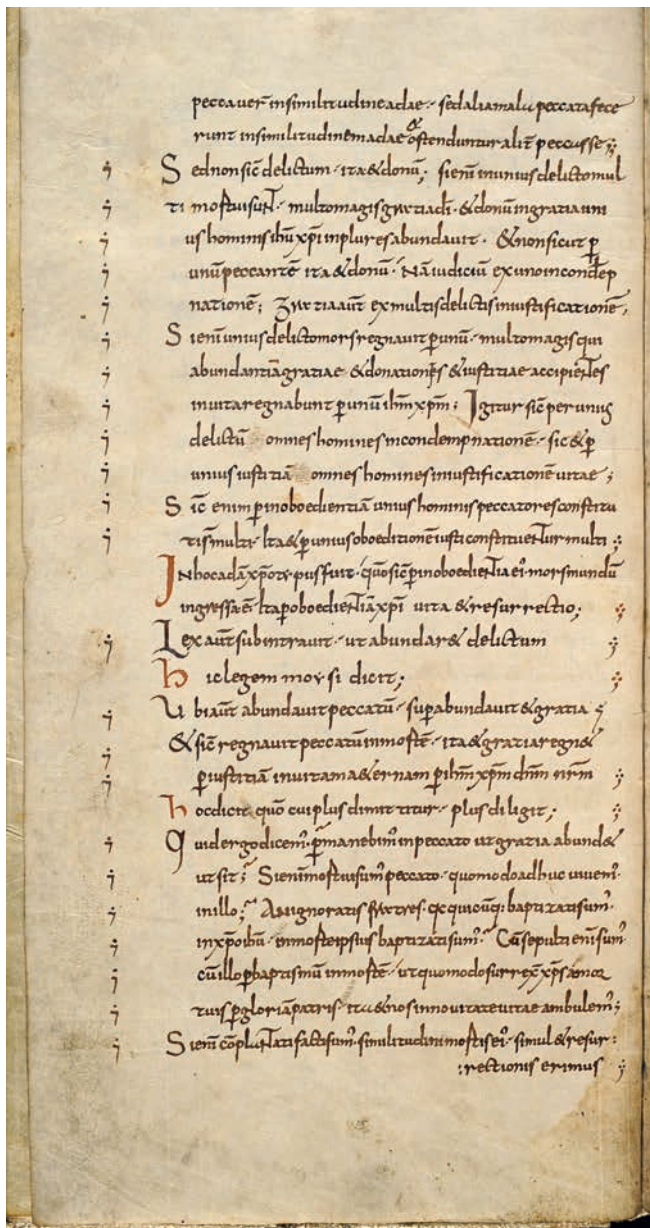 peccauer̄ insimilitudine adae · sed alia mala peccata fece
runt insimilitudinem adae & ostenduntur alit̄ peccasse ;
Sed non sic̄ delictum · ita & donū ; si enī inunius delicto mul
ti mortui sunt · multo magis gratia dī · & donum ingratia uni
us hominis ihū xp̄i inplures abundauit · & non sicut p̱
unū peccantē ita & donū · Nā iudiciū ex uno incondēp
nationē ; gratia aūt ex multis delictis iniustificationē ;
Si enī unius delicto mors regnauit p̱ unū · multo magis qui
abundantiā gratiae · & donationis & iustitiae accipientes
inuita regnabunt p̱ unū ihm̄ xp̄m ; Igitur sic̄ per unius
delictū omnes homines incondempnationē · sic & p̱
unius iustitiā omnes homines iniustificationē uitae ;
Sic̄ enim p̱ inoboedientiā unius hominis peccatores constitu
ti s̄ multi · Ita & p̱ unius oboeditionē iusti constituentur multi ;
In hoc adā xp̄i typus fuit · quō sic̄ p̱ inoboedientia ei' mors mundū
ingressa ē · Ita p̱ oboedientiā xp̄i uita & resurrectio ;
Lex aūt subintrauit · ut abundar& delictum
hic legem moysi dicit ;
Ubi aūt abundauit peccatū · sup̱abundauit & gratia
& sic̄ regnauit peccatū inmorte · ita & gratia regn&
p̱ iustitiā inuitam a&ernam p̱ ihm̄ xp̄m dn̄m nr̄m
hoc dicit quō cui plus dimittitur · plus diligit ;
Quid ergo dicem' p̱manebim' inpeccato ut gratia abund&
ut sit ; Si enī mortui sum' peccato · quomodo adhuc uiuem'
inillo ; An ignoratis fratres · qc quicūq: baptizati sum'
inxp̄o ihū · inmorte ipsius baptizati sum' Cū sepulti enī sum'
cū illo p̱ baptismū inmortē · ut quomodo surrex̄ xp̄s amor
tuis p̱ gloriā patris · ita & nos innouitate uitae ambulem' ;
Si enī cōplantati facti sum' similitudini mortis ei' · simul & resur:
:rectionis erimus